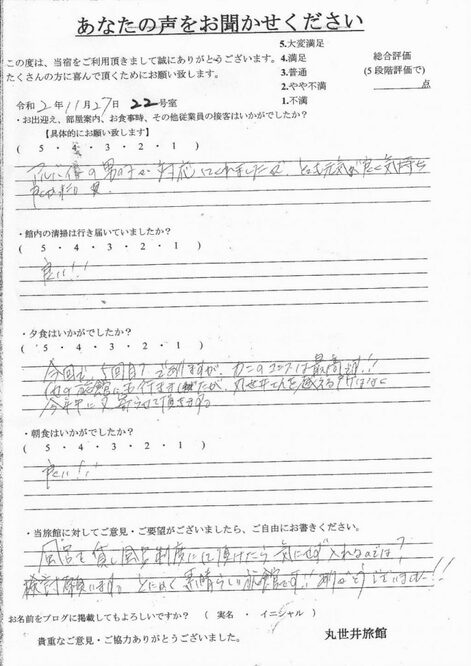 あなたの声をお聞かせください
この度は、当宿をご利用頂きまして誠にありがとうございます。
たくさんの方に喜んで頂くためにお願い致します。
5.大変満足
4.満足
3.普通
2.やや不満
1.不満
総合評価
(5段階評価で)
点
令和2年11月27日 22号室
・お出迎え、部屋案内、お食事時、その他従業員の接客はいかがでしたか？
【具体的にお願い致します】
( 5 ・ 4 ・ 3 ・ 2 ・ 1 )
の男の子が対応してくれましたが、とても元気が良く気持ち
・館内の清掃は行き届いていましたか？
( 5 ・ 4 ・ 3 ・ 2 ・ 1 )
良い!!
・夕食はいかがでしたか？
( 5 ・ 4 ・ 3 ・ 2 ・ 1 )
今回で、5回目でありますが、カニのコースは最高です!!
他の旅館にも行きましたが、丸世井さんを超える所はない
今年中に又寄らせて頂きます。
・朝食はいかがでしたか？
( 5 ・ 4 ・ 3 ・ 2 ・ 1 )
良い!!
・当旅館に対してご意見・ご要望がございましたら、ご自由にお書きください。
風呂を貸し風呂制度にして頂けたら気にせず入れるのでは？
検討願います。とにかく素晴らしい旅館です!! ありがとうございました!!
お名前をブログに掲載してもよろしいですか？ ( 実名 ・ イニシャル )
貴重なご意見・ご協力ありがとうございました。
丸世井旅館